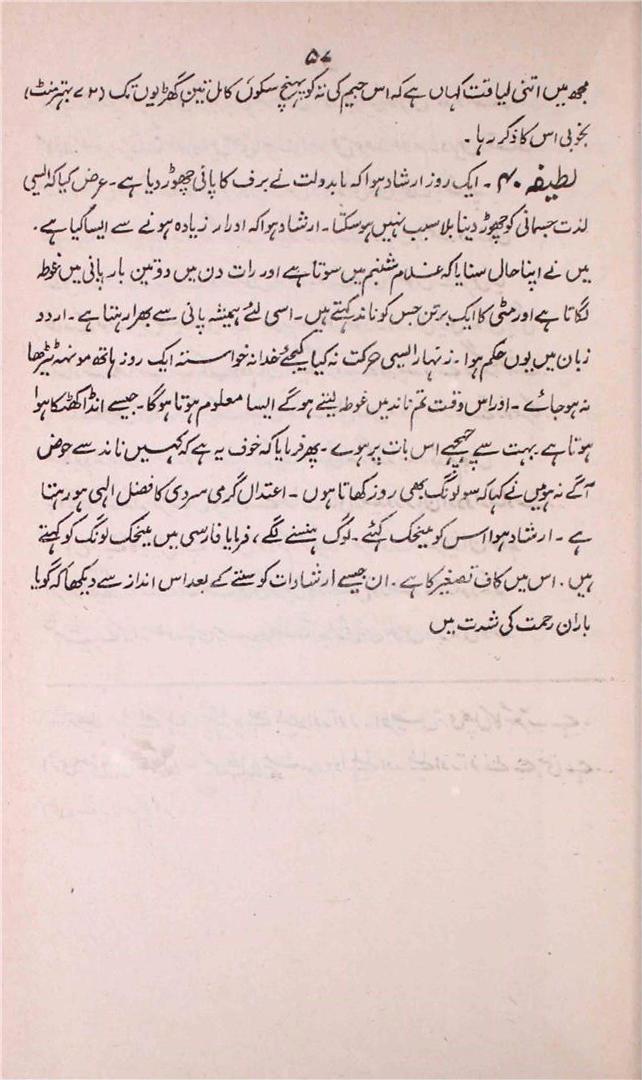 ۵۷
مجھ میں اتنی لیاقت کہاں ہے کہ اس جیم کی تہ کو پہنچ سکوں کامل تین گھڑیوں تک (۷۲ بہتر منٹ)
بخوبی اس کا ذکر رہا ۔
لطیفہ ۴۰ ۔ ایک روز ارشاد ہوا کہ مابدولت نے برف کا پانی چھوڑ دیا ہے ۔ عرض کیا کہ ایسی
لذت جسمانی کو چھوڑ دینا بلا سبب نہیں ہو سکتا ۔ ارشاد ہوا کہ ادرار زیادہ ہونے سے ایسا کیا ہے ۔
میں نے اپنا حال سنایا کہ غلام شبنم میں سوتا ہے اور رات دن میں دو تین بار پانی میں غوطہ
لگاتا ہے اور مٹی کا ایک برتن جس کو ناند کہتے ہیں ۔ اسی لئے ہمیشہ پانی سے بھرا رہتا ہے ۔ اردو
زبان میں یوں حکم ہوا ۔ زنہار ایسی حرکت نہ کیا کیجئے خدا نہ خواستہ ایک روز ہاتھ مونہہ ٹیڑھا
نہ ہو جائے ۔ اور اس وقت تم ناند میں غوطہ لیتے ہوگے ایسا معلوم ہوتا ہوگا ۔ جیسے انڈا کھٹکا ہوا
ہوتا ہے بہت سے چہچہے اس بات پر ہوے ۔ پھر فرمایا کہ خوف یہ ہے کہ کہیں ناند سے حوض
آگے نہ ہو میں نے کہا کہ سو لونگ بھی روز کھاتا ہوں ۔ اعتدال گرمی سردی کا فضل الہی ہو رہتا
ہے ۔ ارشاد ہوا اس کو میخک کہئے ۔ لوگ ہنسنے لگے ، فرمایا فارسی میں میخک لونگ کو کہتے
ہیں ۔ اس میں کاف تصغیر کا ہے ۔ ان جیسے ارشادات کو سننے کے بعد اس انداز سے دیکھا کہ گویا
باران رحمت کی شدت میں